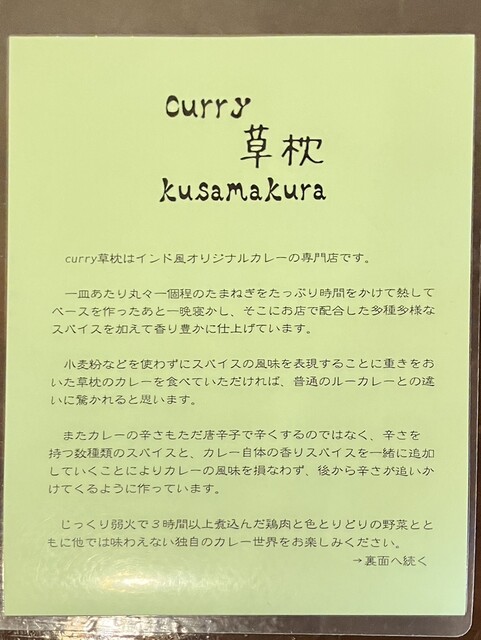 curry
草枕
kusamakura
curry草枕はインド風オリジナルカレーの専門店です。
一皿あたり丸々一個程のたまねぎをたっぷり時間をかけて熱して
ベースを作ったあと一晩寝かし、そこにお店で配合した多種多様な
スパイスを加えて香り豊かに仕上げています。
小麦粉などを使わずにスパイスの風味を表現することに重きをお
いた草枕のカレーを食べていただければ、普通のルーカレーとの違
いに驚かれると思います。
またカレーの辛さもただ唐辛子で辛くするのではなく、辛さを
持つ数種類のスパイスと、カレー自体の香りスパイスを一緒に追加
していくことによりカレーの風味を損なわず、後から辛さが追いか
けてくるように作っています。
じっくり弱火で3時間以上煮込んだ鶏肉と色とりどりの野菜とと
もに他では味わえない独自のカレー世界をお楽しみください。
→裏面へ続く